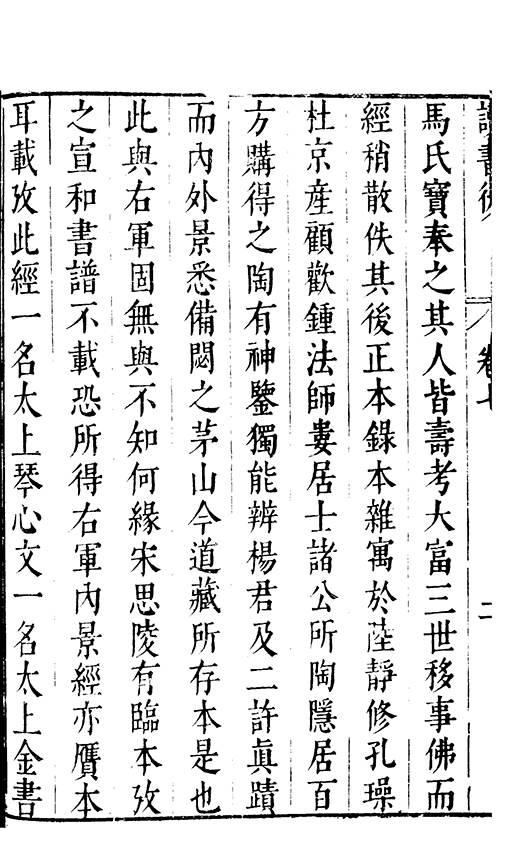 讀書後 卷七 二
馬氏寶奉之其人皆壽考大富三世移事佛而
經稍散佚其後正本錄本雜寓於陸靜修孔璪
杜京產顧歡鍾法師婁居士諸公所陶隱居百
方購得之陶有神鑒獨能辨楊君及二許眞蹟
而內外景悉備閟之茅山今道藏所存本是也
此與右軍固無與不知何緣宋思陵有臨本攷
之宣和書譜不載恐所得右軍內景經亦贋本
耳載攷此經一名太上琴心文一名太上金書